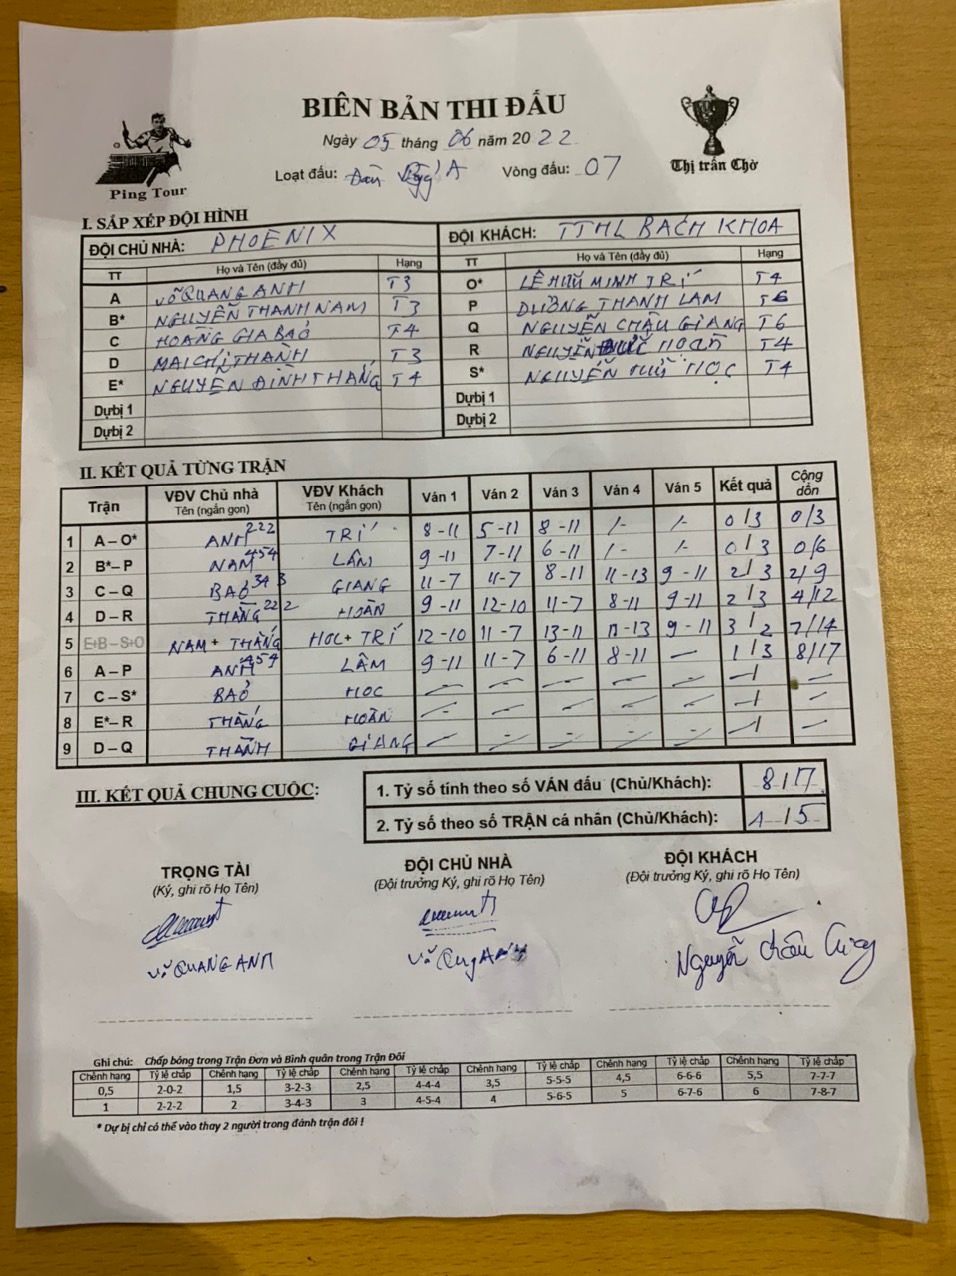 BIÊN BẢN THI ĐẤU
Ngày 05 tháng 06 năm 2022
Loạt đấu: A Vòng đấu: 07
Ping Tour
Thị trấn Chờ
I. SẮP XẾP ĐỘI HÌNH
ĐỘI CHỦ NHÀ: PHOENIX ĐỘI KHÁCH: TTHL BACH KHOA
TT Họ và Tên (đầy đủ) Hạng TT Họ và Tên (đầy đủ) Hạng
A VÕ QUANG ANH T3 O* LÊ HỮU MINH TRÍ T4
B* NGUYỄN THANH NAM T3 P DƯƠNG THANH LAM T6
C HOÀNG GIA BẢO T4 Q NGUYỄN CHÂU GIANG T6
D MAI CHÍ THÀNH T3 R NGUYỄN ĐỨC HOÀN T4
E* NGUYỄN ĐÌNH THẮNG T4 S* NGUYỄN HỌC T4
Dự bị 1 Dự bị 1
Dự bị 2 Dự bị 2
II. KẾT QUẢ TỪNG TRẬN
Trận VĐV Chủ nhà Tên (ngắn gọn) VĐV Khách Tên (ngắn gọn) Ván 1 Ván 2 Ván 3 Ván 4 Ván 5 Kết quả Cộng dồn
1 A – O* ANH 222 TRÍ 8-11 5-11 8-11 /- /- 0/3 0/3
2 B* – P NAM 454 LÂM 9-11 7-11 6-11 /- /- 0/3 0/6
3 C – Q BẢO 343 GIANG 11-7 11-7 8-11 11-13 9-11 2/3 2/9
4 D – R THẮNG 222 HOÀN 9-11 12-10 11-7 8-11 9-11 2/3 4/12
5 E+B – S+O NAM + THẮNG HOC + TRÍ 12-10 11-7 13-11 11-13 9-11 3/2 7/14
6 A – P ANH 454 LÂM 9-11 11-7 6-11 8-11 — 1/3 8/17
7 C – S* BẢO HOC — — — — — -/ —
8 E* – R THẮNG HOÀN — — — — — -/ —
9 D – Q THÀNH GIANG — — — — — -/ —
III. KẾT QUẢ CHUNG CUỘC:
1. Tỷ số tính theo số VÁN đấu (Chủ/Khách): 8/17
2. Tỷ số theo số TRẬN cá nhân (Chủ/Khách): 1/5
TRỌNG TÀI ĐỘI CHỦ NHÀ ĐỘI KHÁCH
(Ký, ghi rõ Họ Tên) (Đội trưởng Ký, ghi rõ Họ Tên) (Đội trưởng Ký, ghi rõ Họ Tên)
Võ QUANG ANH Võ Quang Anh Nguyễn Châu Giang
Ghi chú: Chấp bóng trong Trận Đơn và Bình quân trong Trận Đôi
Chênh hạng Tỷ lệ chấp Chênh hạng Tỷ lệ chấp Chênh hạng Tỷ lệ chấp Chênh hạng Tỷ lệ chấp Chênh hạng Tỷ lệ chấp Chênh hạng Tỷ lệ chấp
0,5 2-0-2 1,5 3-2-3 2,5 4-4-4 3,5 5-5-5 4,5 6-6-6 5,5 7-7-7
1 2-2-2 2 3-4-3 3 4-5-4 4 5-6-5 5 6-7-6 6 7-8-7
* Dự bị chỉ có thể vào thay 2 người trong đánh trận đôi !